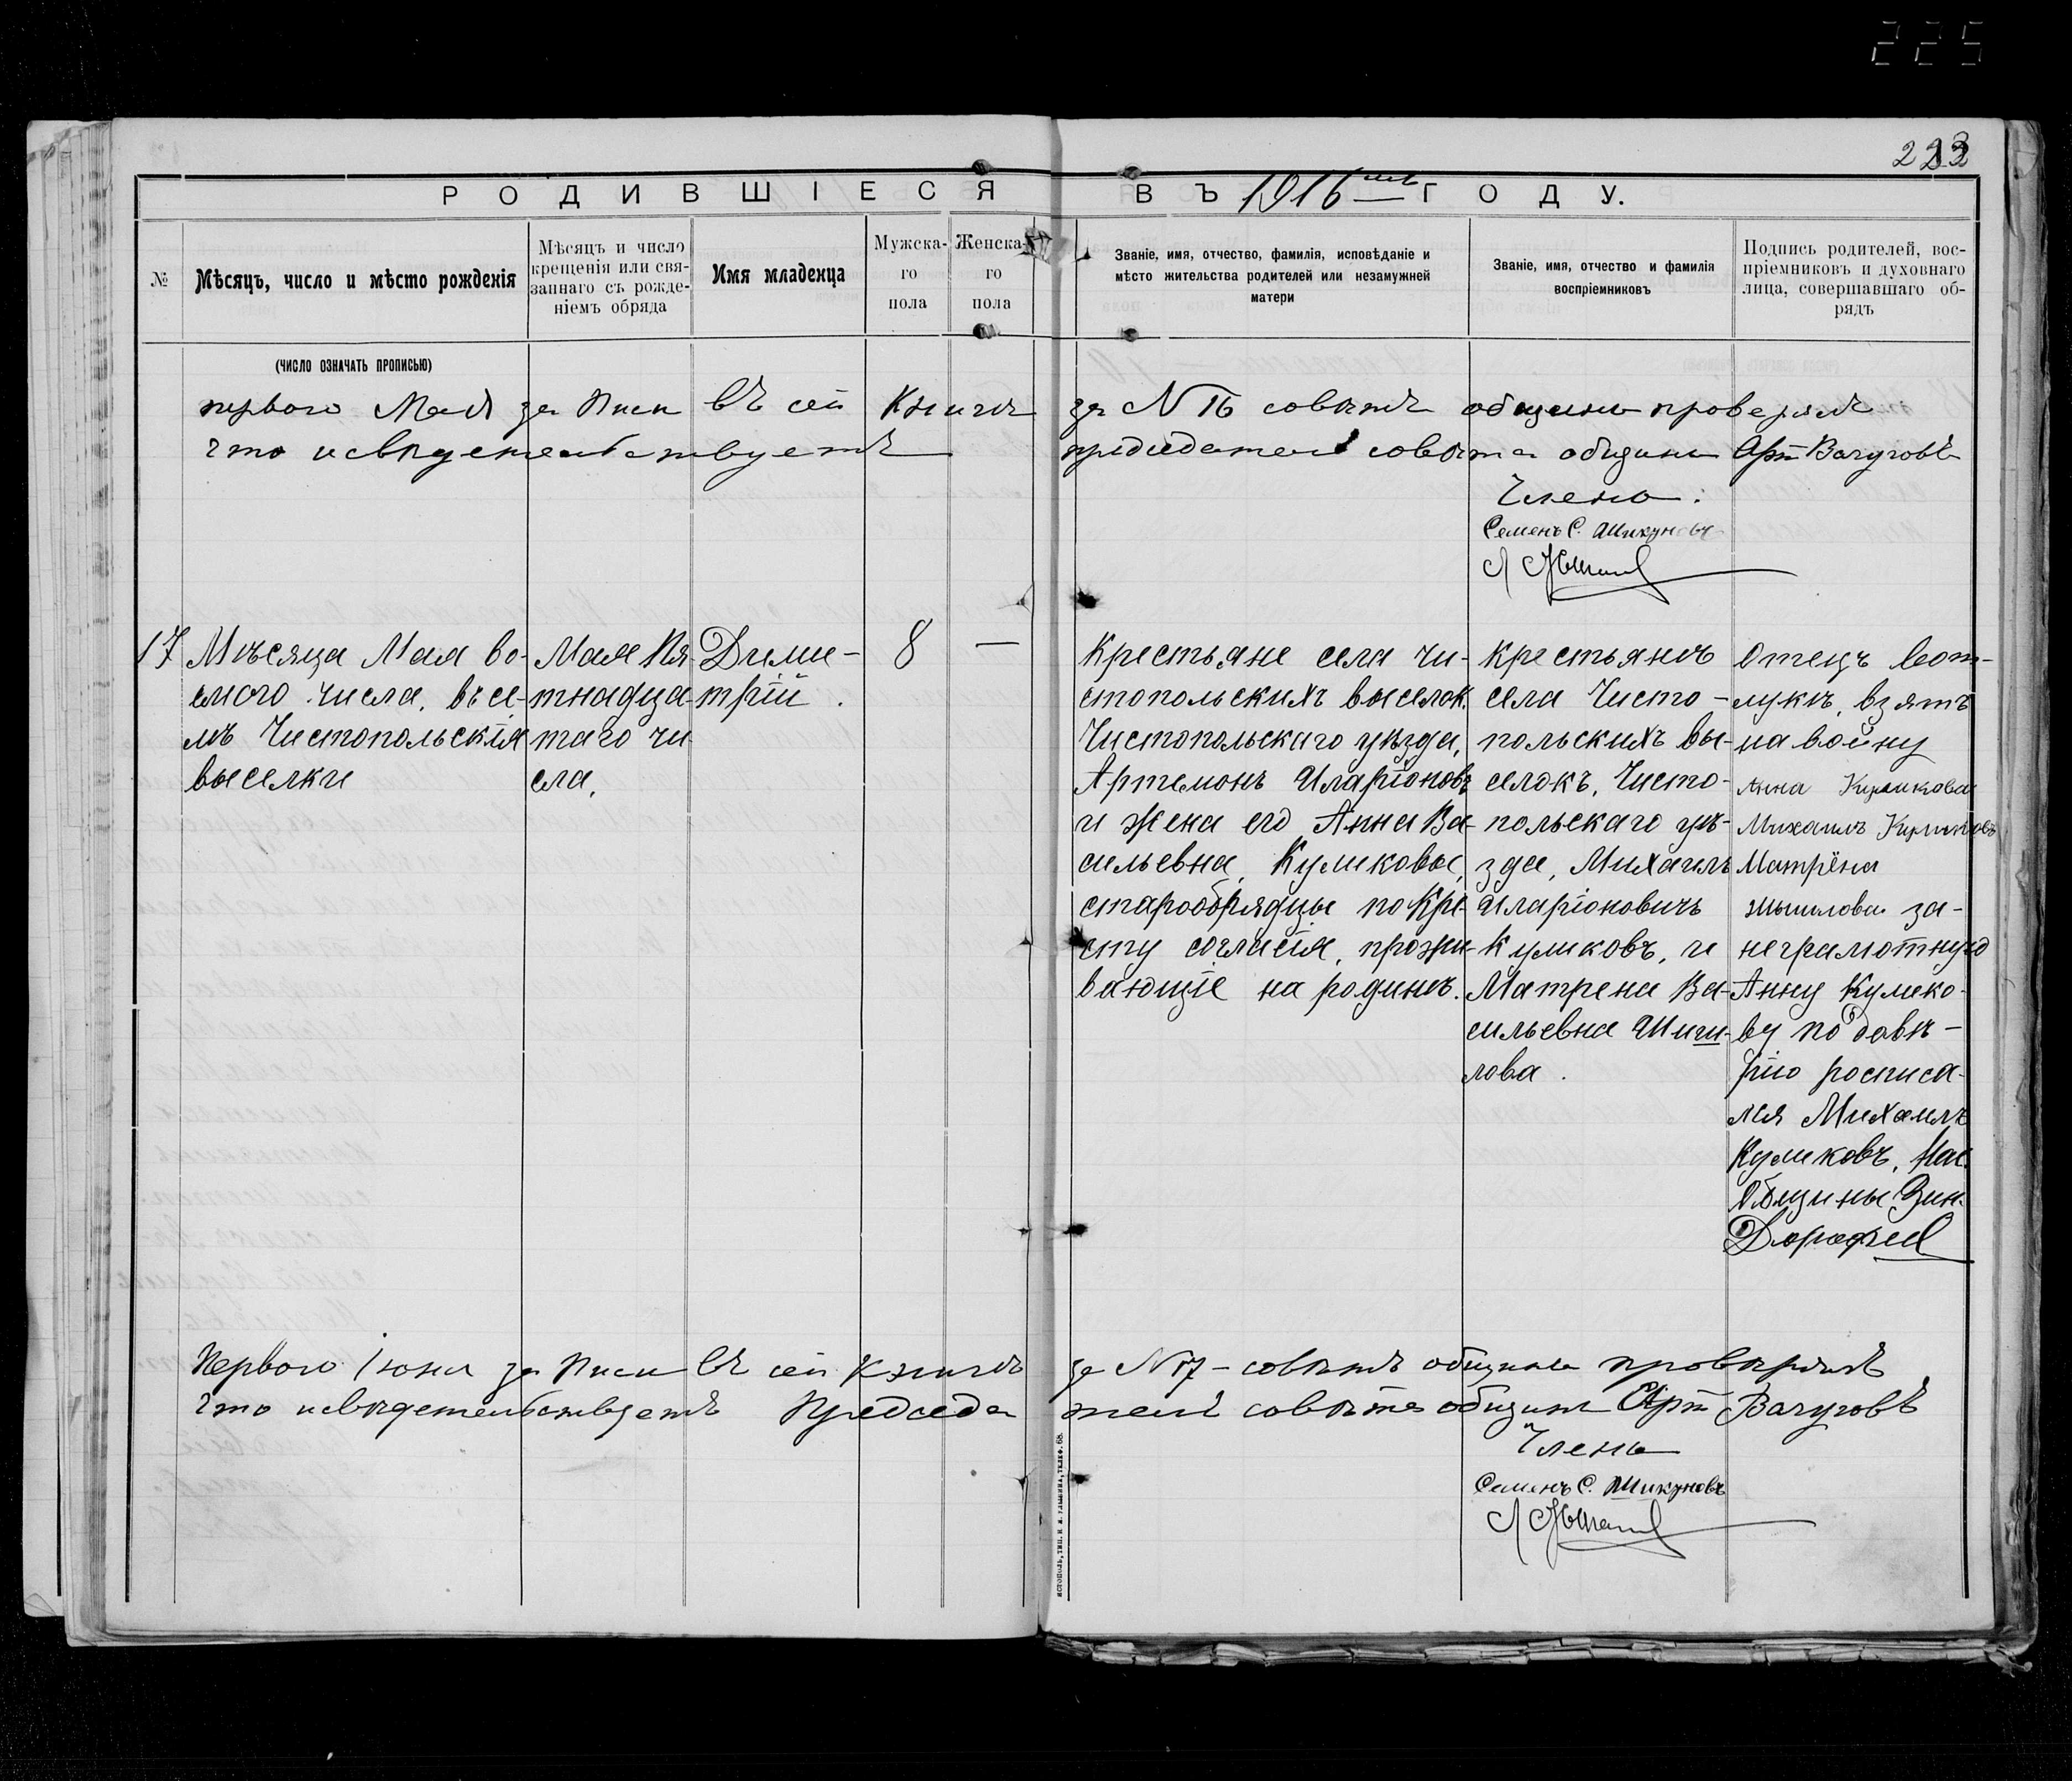 225
223
РОДИВШІЕСЯ ВЪ 1916 ГОДУ.
№
Мѣсяцъ, число и мѣсто рожденія
Мѣсяцъ и число
крещенія или свя-
заннаго съ рожде-
ніемъ обряда
Имя младенца
Мужска-
го
пола
Женска-
го
пола
Званіе, имя, отчество, фамилія, исповѣданіе и
мѣсто жительства родителей или незамужней
матери
Званіе, имя, отчество и фамилія
воспріемниковъ
Подпись родителей, вос-
пріемниковъ и духовнаго
лица, совершавшаго об-
рядъ
(ЧИСЛО ОЗНАЧАТЬ ПРОПИСЬЮ)
первого Мая за писи въ сей книгѣ за N 16 совѣтъ общины проверялъ
что и свѣдетельствуетъ председатель совѣта общины Арт Вачуговъ
Члены:
Семенъ С. Шикуновъ
17
Мѣсяца Мая во-
смого числа, въ се-
лѣ Чистопольскія
выселки
Мая Пя-
тнадца-
таго чи-
сла,
Дими-
трій.
8
—
Крестьяне села Чи-
стопольскихъ выселок.
Чистопольскаго уѣзда,
Артемонъ Иларіоновъ
и жена его Анна Ва-
сильевна, Куликовы,
старообрядцы по Хри-
сту согласія, прожи-
вающіе на родинѣ.
крестьянъ
села Чисто-
польскихъ вы-
селокъ, Чисто-
польскаго уѣ-
зда, Михаилъ
Иларіоновичъ
Куликовъ, и
Матрена Ва-
сильевна Шиши-
лова.
Отецъ вот-
лукѣ, взятъ
на войну
Анна Куликова
Михаилъ Куликовъ
Матрёна
за-
неграмотную
Анну Кулико-
ву по довѣ-
рію росписа-
лся Михаилъ
Куликовъ, Нас.
Общины Зин.
Дорофеев
Первого Іюня за писи въ сей книгѣ за N 17 - совѣтъ общины провѣрялъ
что и свѣдетельствуетъ Председатель совѣта общины Арт Вачуговъ
Члены
Семенъ С. Шикуновъ